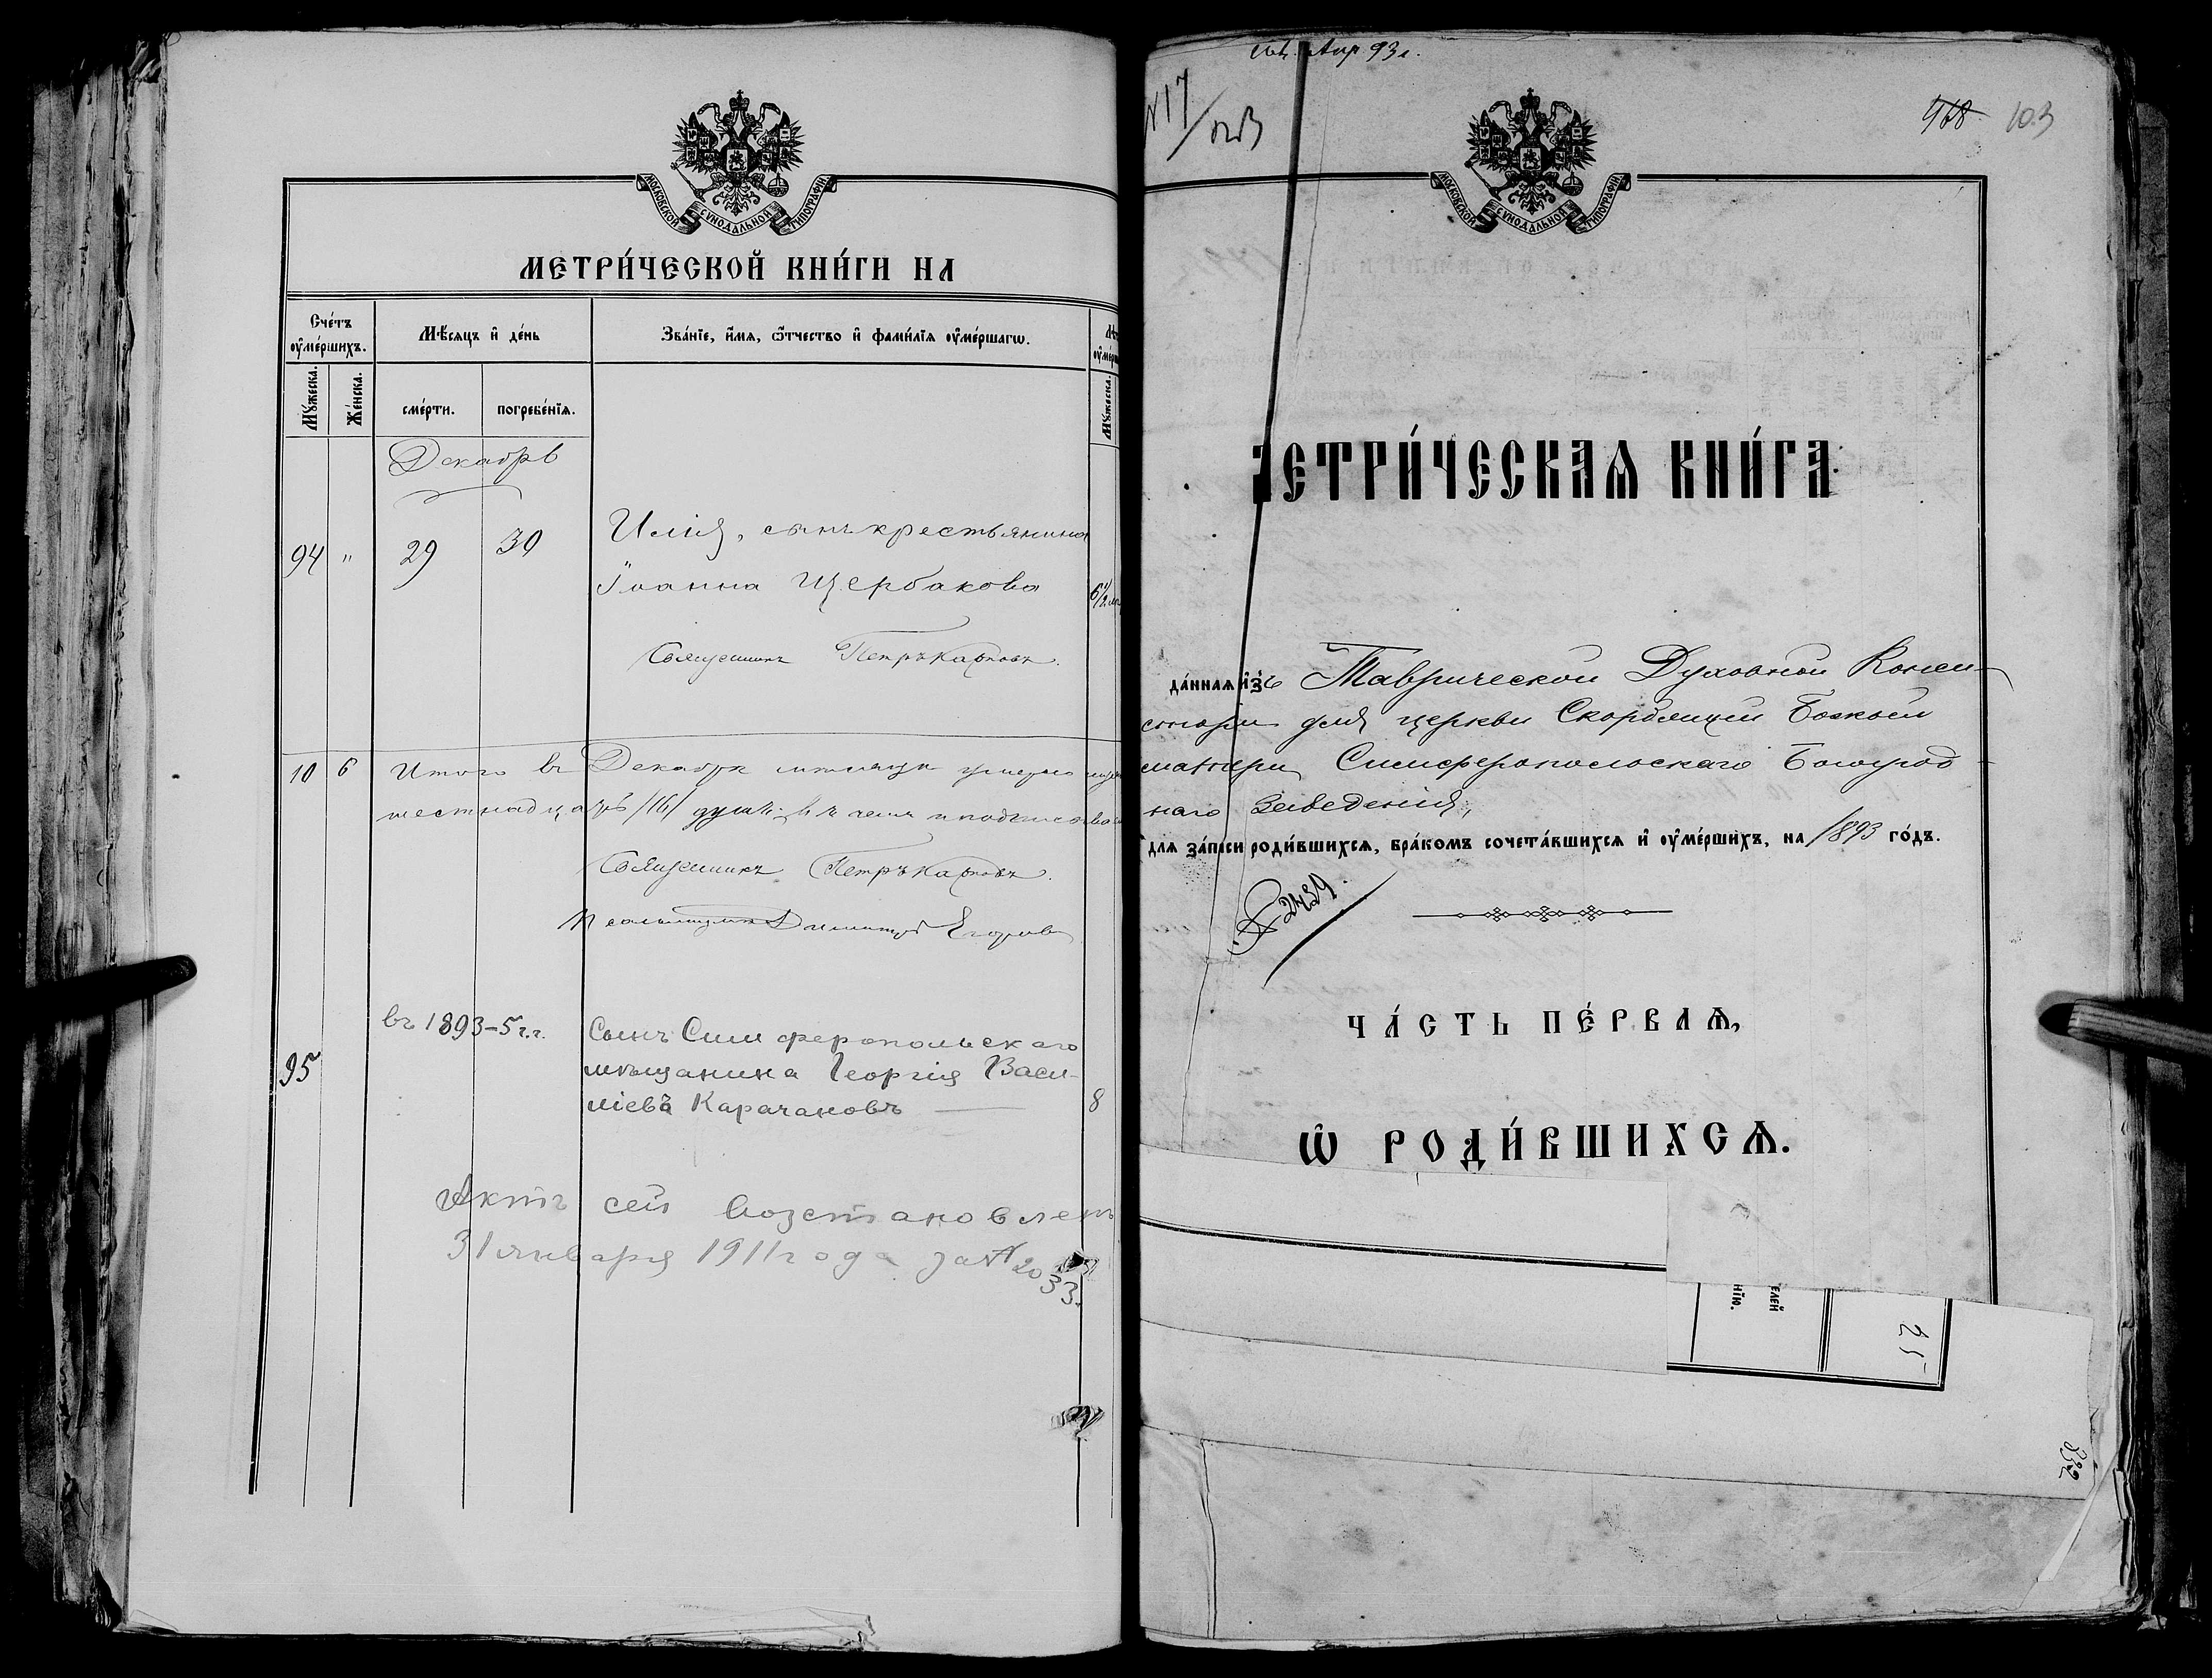 МОСКОВСКОЙ СѴНОДАЛЬНОЙ ТИПОГРАФІИ
МЕТРИ́ЧЕСКОЙ КНИ́ГИ НА
Сче́тъ оу҆ме́ршихъ.
Мѣ́сяцъ и҆ де́нь
Зва́нїе, и҆́мя, ѻ҆́тчество и҆ фами́лїя оу҆ме́ршагѡ.
Мꙋ́жеска.
Же́нска.
сме́рти.
погребе́нїя.
Мꙋ́жеска.
Декабрь
94 " 29 30 Илія, сынъ крестьянина
Іоанна Щербакова
Священникъ Петръ Карповъ.
10 6 Итого въ Декабрѣ мѣсяцѣ умерло
шестнадцать /16/ душъ; въ чемъ и подписо
Священникъ Петръ Карповъ.
Псаломщикъ Димитрій Егоровъ
въ 1893-5 г.г. Сынъ Симферопольскаго
95 мѣщанина Георгія Васи-
ліева Карачановъ 8
Актъ сей возстановленъ
31 января 1911 года за № 2033.
Апр 93 г.
N 17
968 103
МОСКОВСКОЙ СѴНОДАЛЬНОЙ ТИПОГРАФІИ
ЕТРИ́ЧЕСКАѦ КНИ́ГА
да́нная и҆зъ Таврической Духовной Конси-
сторіи для церкви Скорбящей Божьей
матери Симферопольскаго Богоугод-
наго заведенія,
для за́писи роди́вшихся, бра́комъ сочета́вшихся и҆ оу҆ме́ршихъ, на 1893 го́дъ.
2439.
ЧА́СТЬ ПЕ́РВАѦ,
Ѡ҆ РОДИ́ВШИХСѦ.
елей
нїю.
25
332